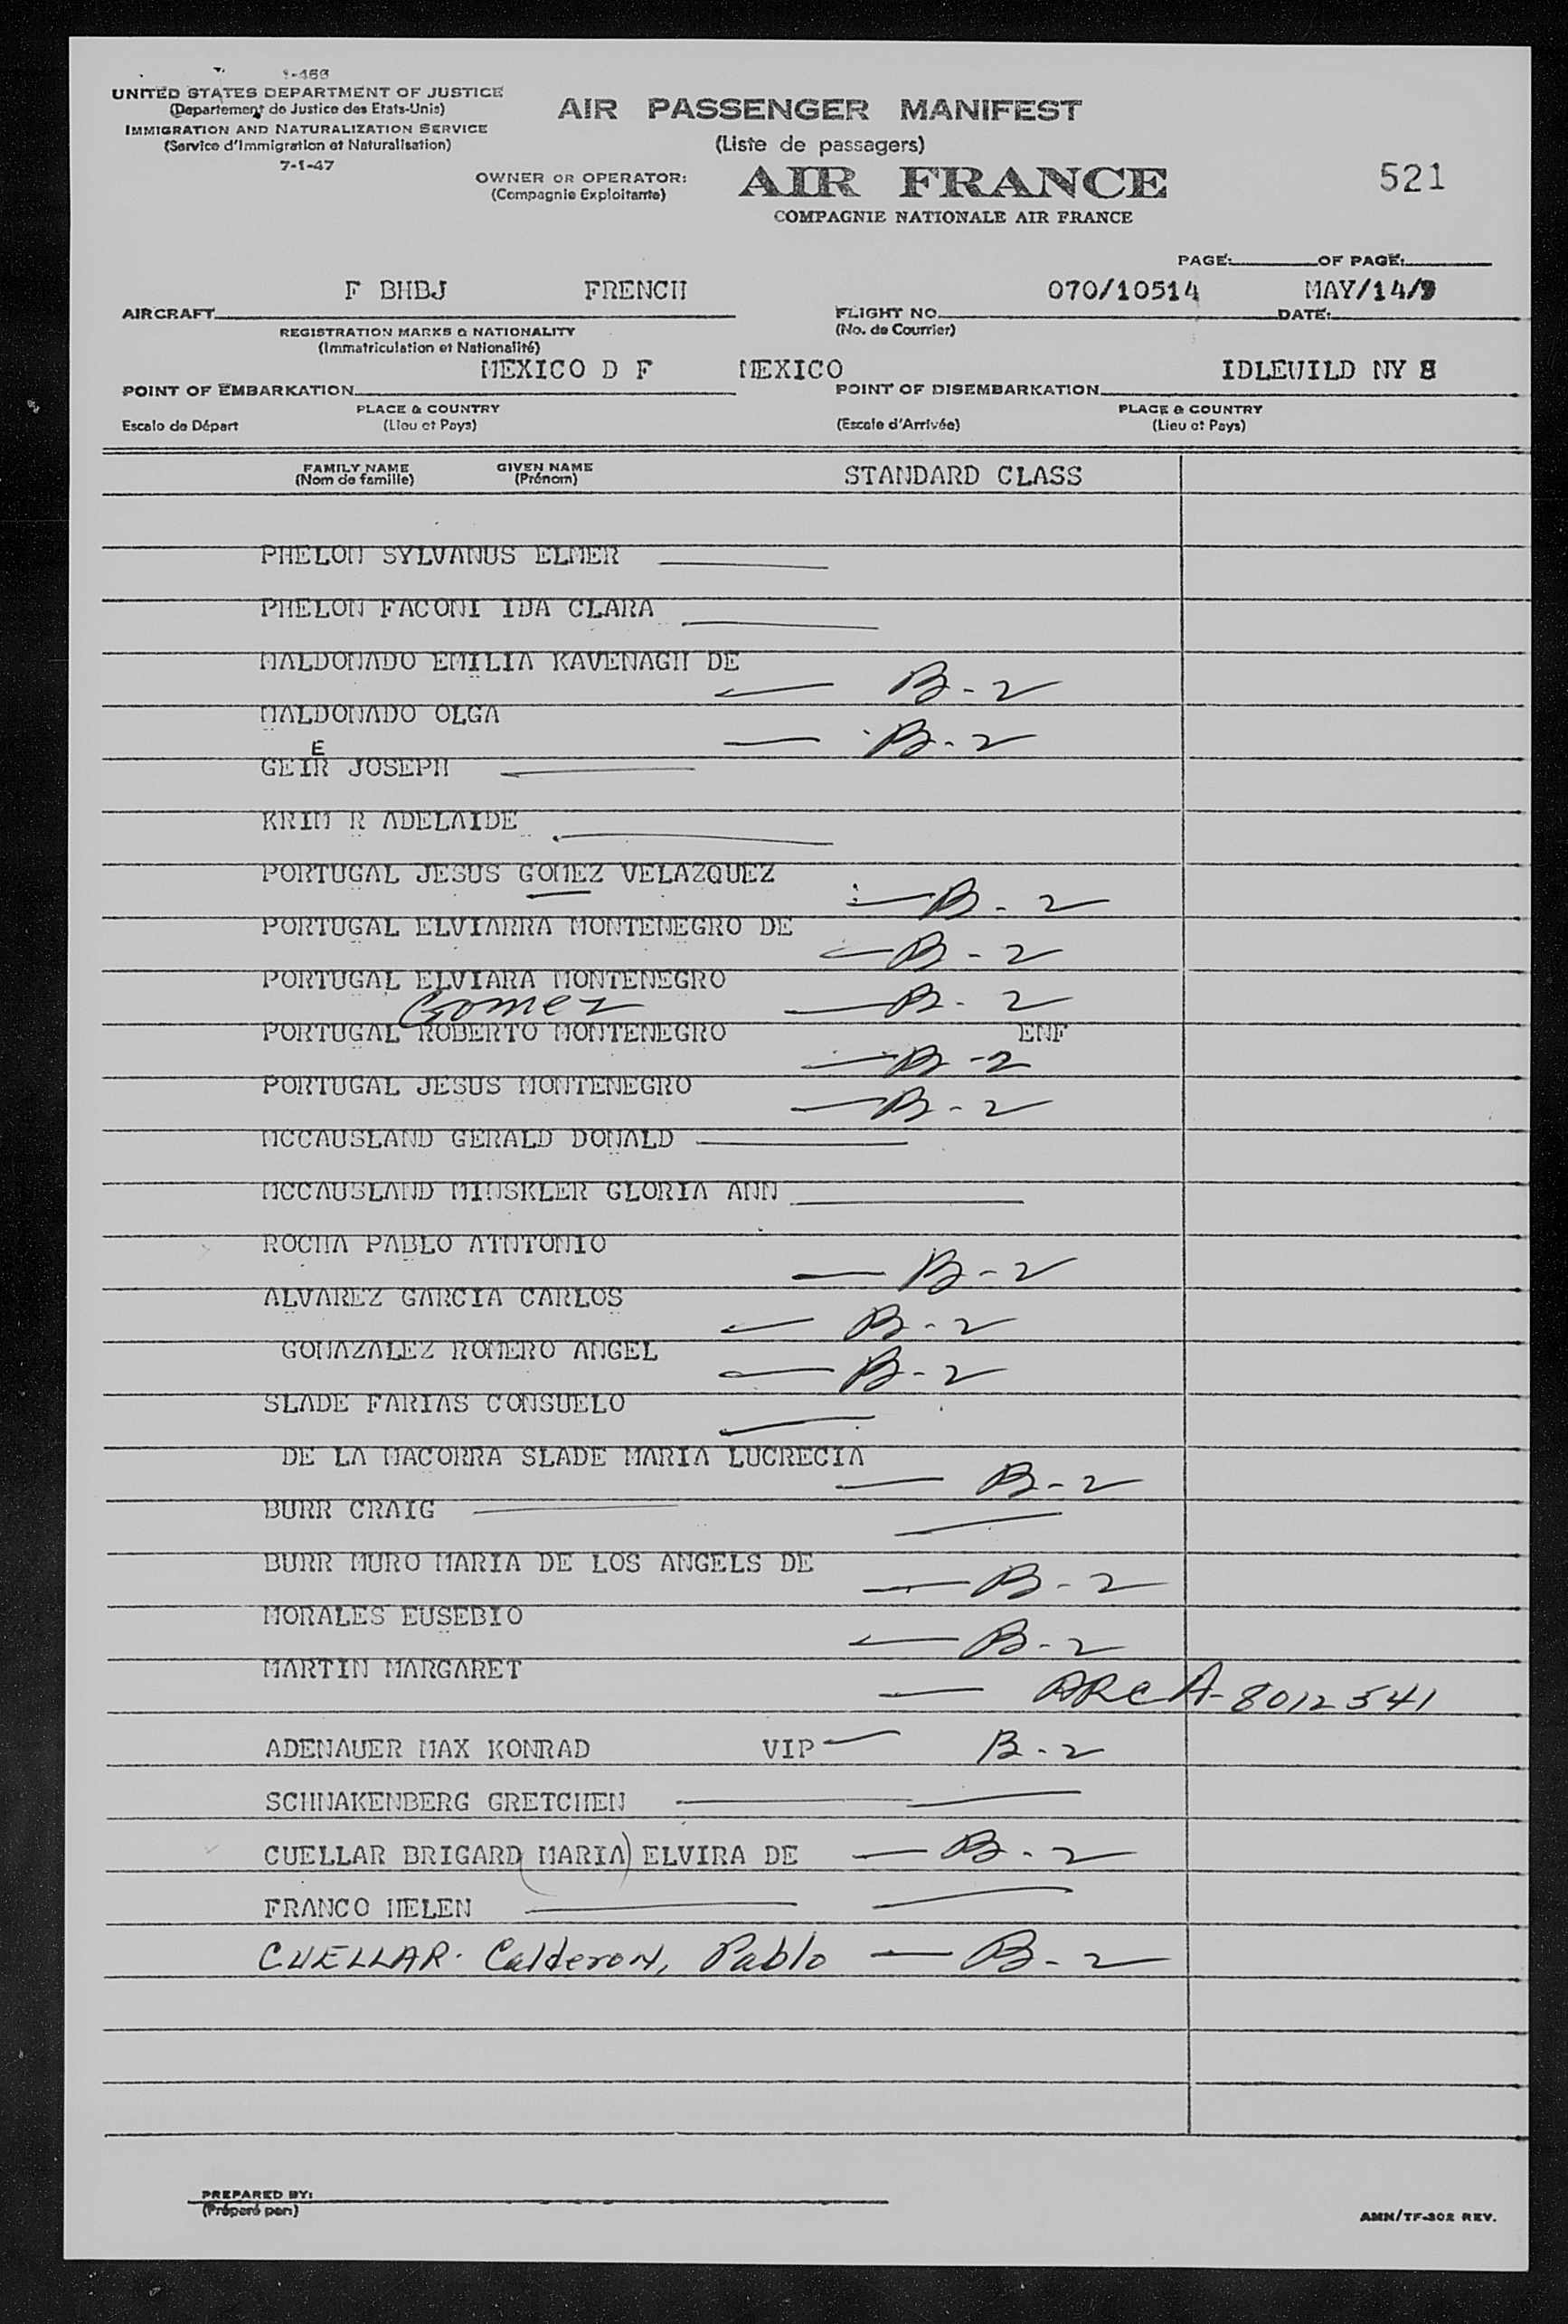 I-466
UNITED STATES DEPARTMENT OF JUSTICE
(Departement de Justice des Etats-Unis)
IMMIGRATION AND NATURALIZATION SERVICE
(Service d'Immigration et Naturalisation)
7-1-47
AIR PASSENGER MANIFEST
(Liste de passagers)
OWNER OR OPERATOR:
(Compagnie Exploitante)
AIR FRANCE
COMPAGNIE NATIONALE AIR FRANCE
521
PAGE: OF PAGE:
AIRCRAFT F BHBJ FRENCH
REGISTRATION MARKS & NATIONALITY
(Immatriculation et Nationalité)
FLIGHT NO. 070/10514 DATE: MAY/14/9
(No. de Courrier)
POINT OF EMBARKATION MEXICO D F MEXICO
PLACE & COUNTRY
Escale de Départ (Lieu et Pays)
POINT OF DISEMBARKATION IDLEWILD NY
PLACE & COUNTRY
(Escale d'Arrivée) (Lieu et Pays)
FAMILY NAME GIVEN NAME STANDARD CLASS
(Nom de famille) (Prénom)
PHELON SYLVANUS ELMER
PHELON FACONI IDA CLARA
MALDONADO EMILIA KAVENAGH DE — B-2
MALDONADO OLGA — B-2
E
GEIR JOSEPH
KRIM R ADELAIDE
PORTUGAL JESUS GOMEZ VELAZQUEZ — B-2
PORTUGAL ELVIARRA MONTENEGRO DE — B-2
PORTUGAL ELVIARA MONTENEGRO — B-2
Gomez
PORTUGAL ROBERTO MONTENEGRO ENF — B-2
PORTUGAL JESUS MONTENEGRO — B-2
MCCAUSLAND GERALD DONALD
MCCAUSLAND MINSKLER GLORIA ANN
ROCHA PABLO ATNTONIO — B-2
ALVAREZ GARCIA CARLOS — B-2
GONAZALEZ ROMERO ANGEL — B-2
SLADE FARIAS CONSUELO
DE LA MACORRA SLADE MARIA LUCRECIA — B-2
BURR CRAIG
BURR MURO MARIA DE LOS ANGELS DE — B-2
MORALES EUSEBIO — B-2
MARTIN MARGARET — ARC A-8012541
ADENAUER MAX KONRAD VIP — B-2
SCHNAKENBERG GRETCHEN
CUELLAR BRIGARD (MARIA) ELVIRA DE — B-2
FRANCO HELEN
CUELLAR. Calderon, Pablo — B-2
PREPARED BY:
(Préparé par:)
AMN/TF-302 REV.